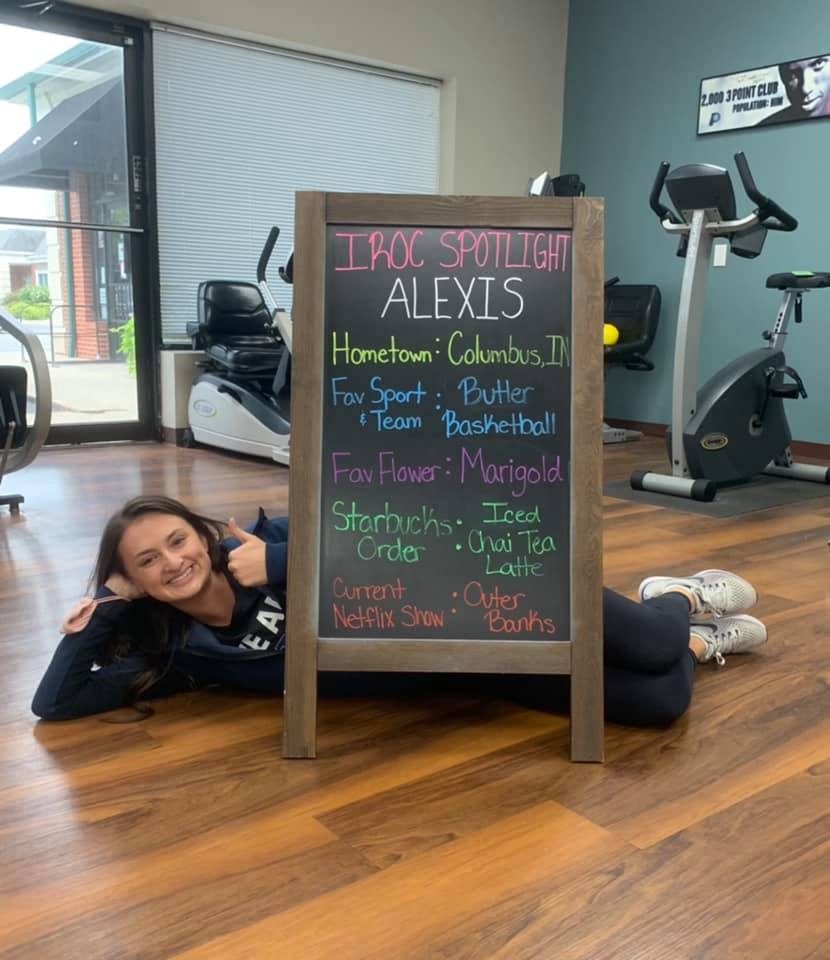 2,000 3 POINT CLUB
POPULATION: HIM
IROC SPOTLIGHT
ALEXIS
Hometown: Columbus, IN
Fav Sport & Team : Butler Basketball
Fav Flower: Marigold
Starbucks Order : Iced Chai Tea Latte
Current Netflix Show : Outer Banks